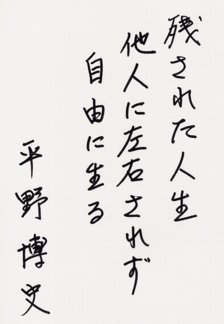 残された人生
他人に左右されず
自由に生る
平野博史